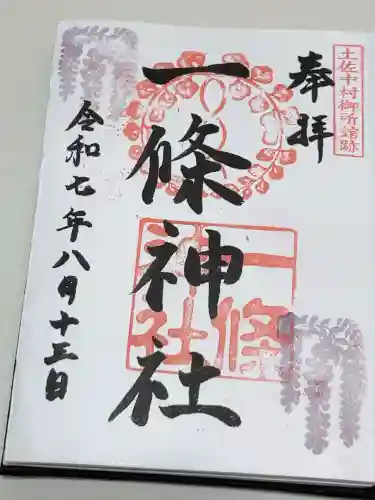 土佐中村御所館跡
奉拝
一條神社
一條
神社
令和七年八月十三日